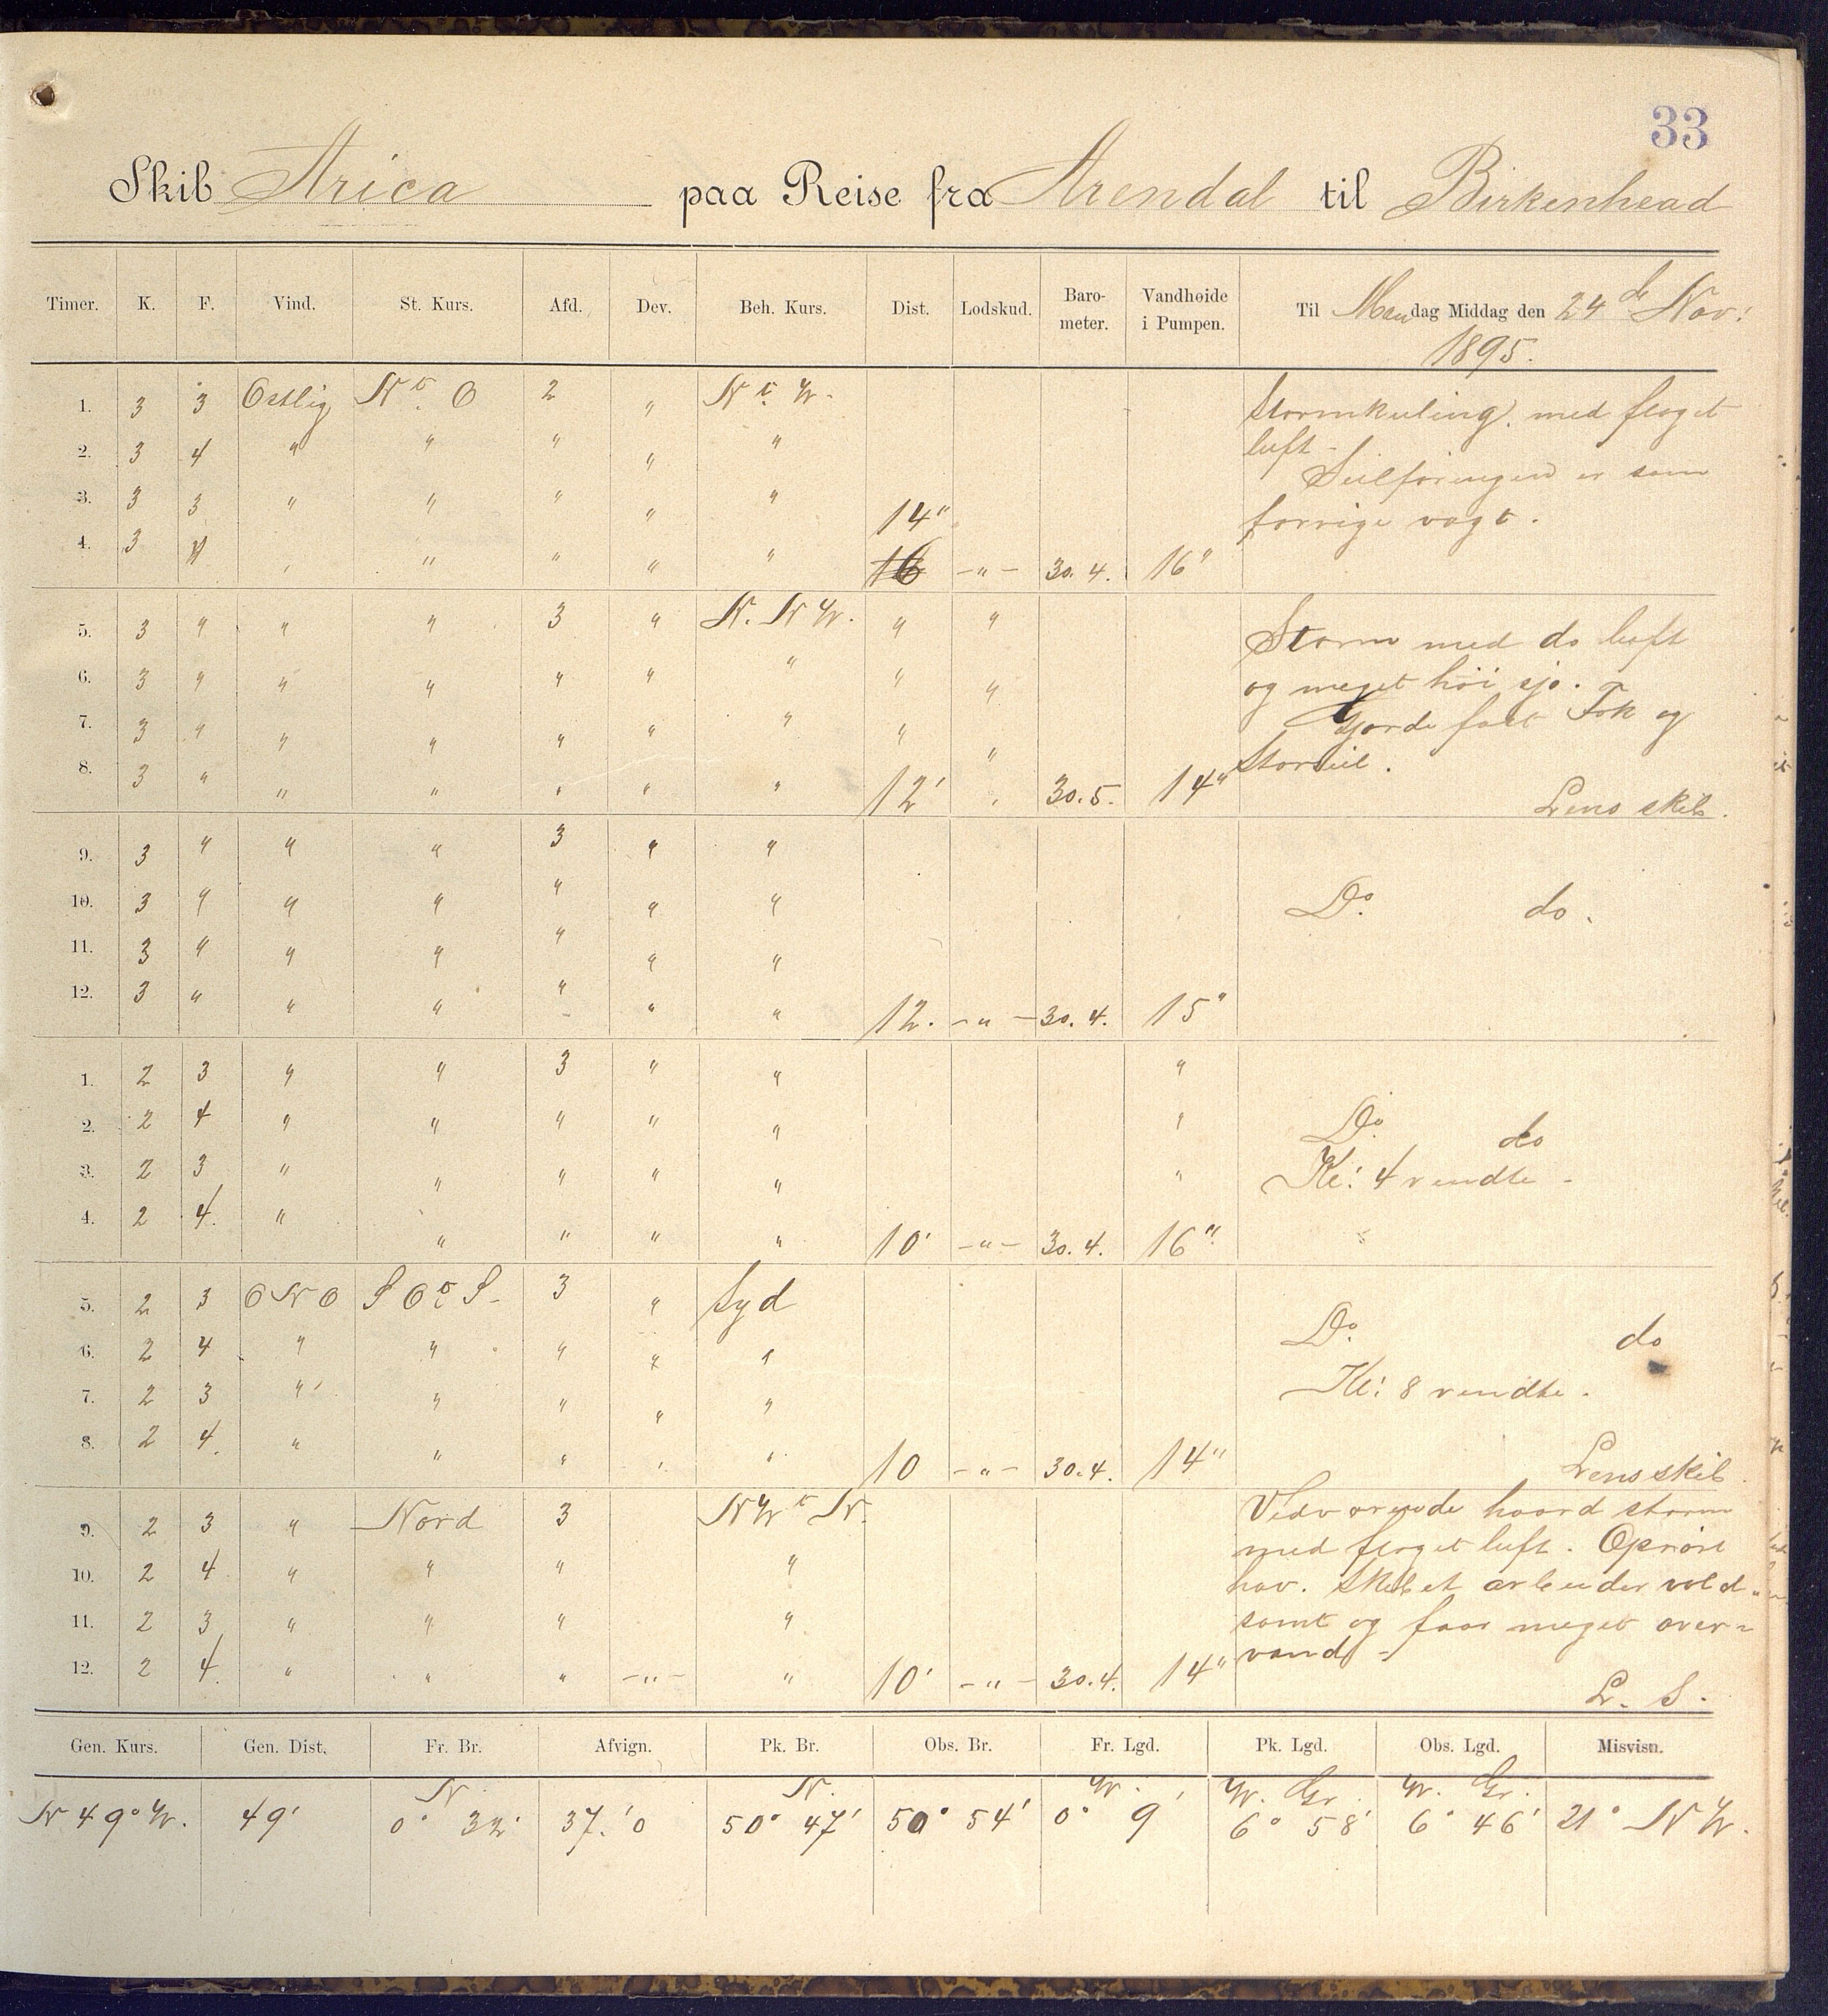 33
Skib Arica paa Reise fra Arendal til Birkenhead
Timer. K. F. Vind. St. Kurs. Afd. Dev. Beh. Kurs. Dist. Lodskud. Baro-meter. Vandhøide i Pumpen. Til Mandag Middag den 24 de Nov: 1895.
1. 3 3 Ostlig N t. O 2 " N t. W. Stormkuling. med floget
2. 3 4 " " " " " luft -
Seilføringen er som
3. 3 3 " " " " " 14" forrige vagt.
4. 3 4 " " " " " 16 -"- 30.4. 16"
5. 3 " " " 3 " N. N W. " " Storm med do luft
6. 3 " " " " " " " " og meget høi sjø. -
7. 3 " " " " " " " " Gjorde fast Fok og
8. 3 " " " " " " 12' " 30.5. 14" Storseil.
Lens skib.
9. 3 " " " 3 " "
10. 3 " " " " " " Do. do.
11. 3 " " " " " "
12. 3 " " " " " " 12. -"- 30.4. 15"
1. 2 3 " " 3 " " "
2. 2 4 " " " " " " Do. do
3. 2 3 " " " " " " Kl: 4 vendte -
4. 2 4. " " " " " 10' -"- 30.4. 16"
5. 2 3 O N O S O t. S. 3 " Syd
6. 2 4 " " " " " Do. do
7. 2 3 " " " " " Kl: 8 vendte.
8. 2 4. " " " " " 10 -"- 30.4. 14" Lens skib
9. 2 3 " Nord 3 N W t N. Vedvarende haard storm
10. 2 4 " " " " med floget luft. Oprørt
hav. Skibet arbeider vold-
11. 2 3 " " " " somt og faar meget over-
12. 2 4. " " " -"- " 10' -"- 30.4. 14" vand -
L. S.
Gen. Kurs. Gen. Dist. Fr. Br. Afvign. Pk. Br. Obs. Br. Fr. Lgd. Pk. Lgd. Obs. Lgd. Misvisn.
N N. W. W. Gr. W. Gr.
N 49° W. 49' 0° 32' 37.'0 50° 47' 50° 54' 0° 9' 6° 58' 6° 46' 21° N W.